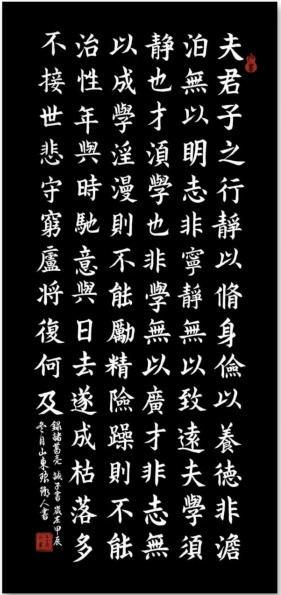 夫君子之行靜以脩身儉以養德非澹
泊無以明志非寧靜無以致遠夫學須
靜也才湏學也非學無以廣才非志無
以成學淫漫則不能勵精險躁則不能
治性年與時馳意與日去遂成枯落多
不接世悲守窮廬將復何及
錄諸葛亮誡子書歲在甲辰
冬月山東琅人書